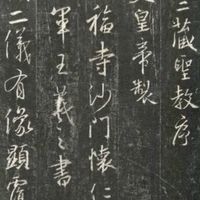 三藏聖教序
文皇帝製
福寺沙門懷仁
軍王羲之書
二儀有像顯覆